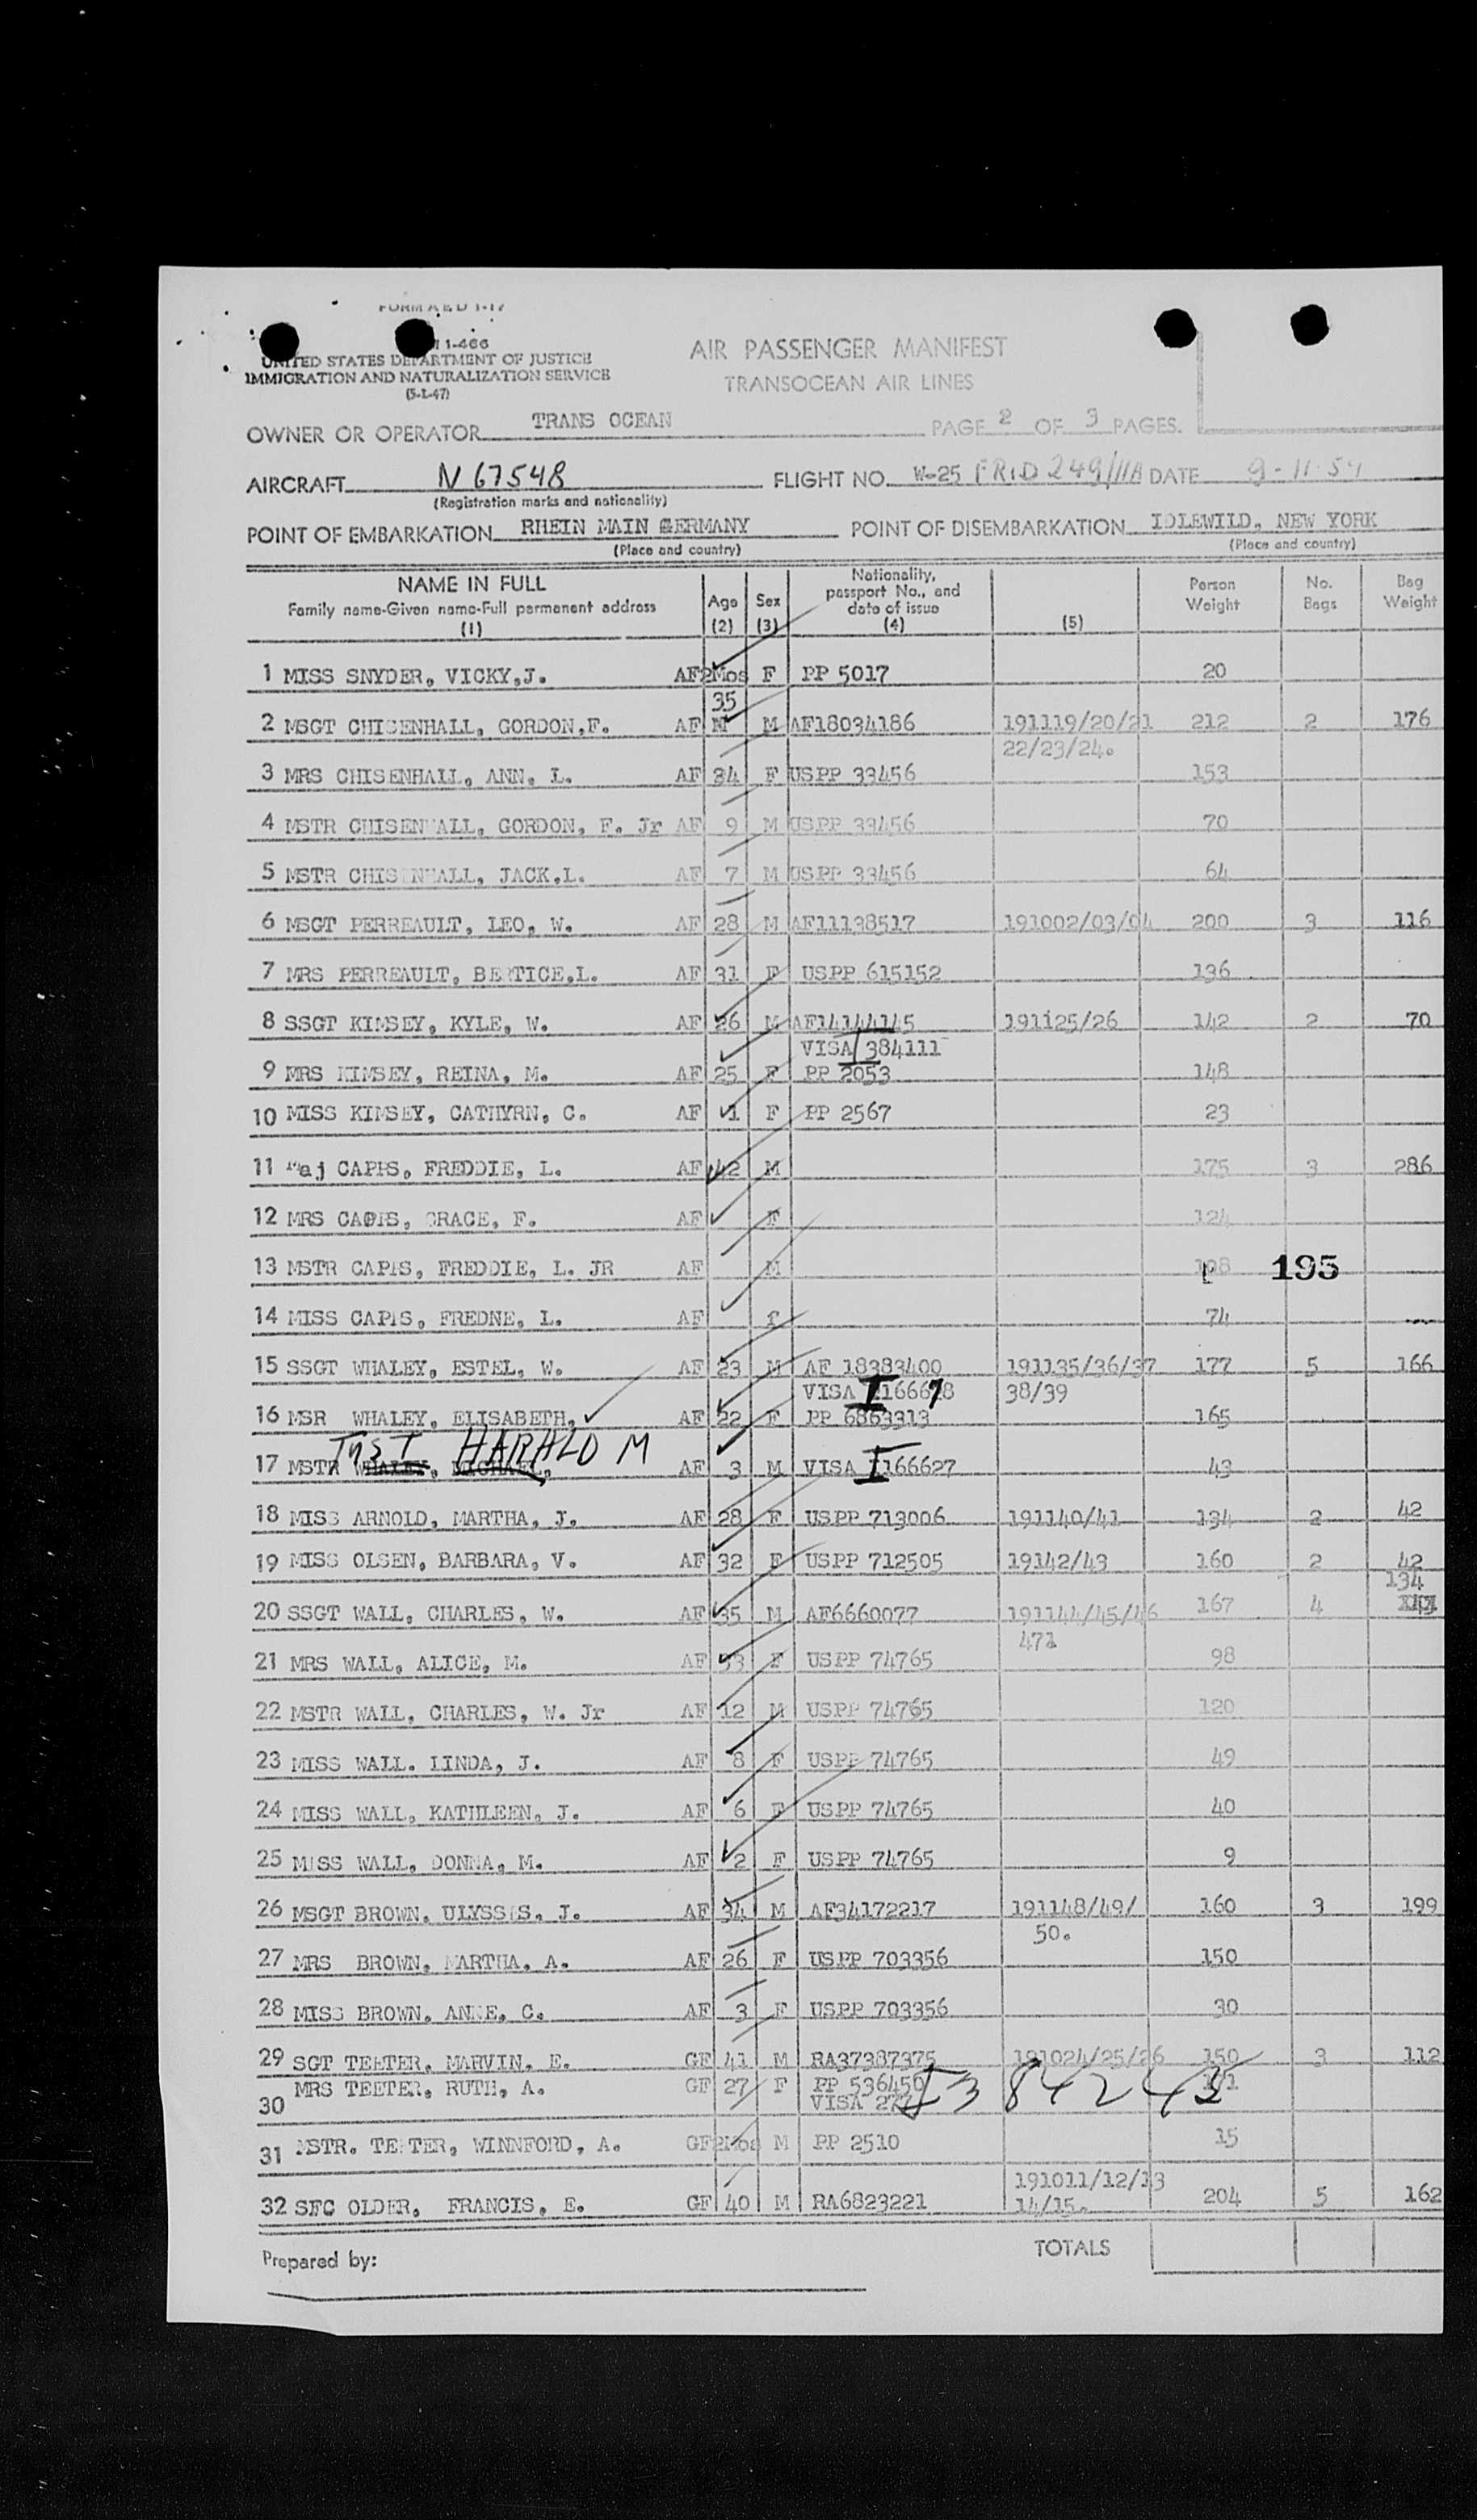 FORM AED 1-17
1-466
UNITED STATES DEPARTMENT OF JUSTICE
IMMIGRATION AND NATURALIZATION SERVICE
(5-1-47)
AIR PASSENGER MANIFEST
TRANSOCEAN AIR LINES
OWNER OR OPERATOR TRANS OCEAN PAGE 2 OF 3 PAGES.
AIRCRAFT N 67548 FLIGHT NO. W-25 FRID 249/11A DATE 9-11-54
(Registration marks and nationality)
POINT OF EMBARKATION RHEIN MAIN GERMANY POINT OF DISEMBARKATION IDLEWILD, NEW YORK
(Place and country) (Place and country)
NAME IN FULL Family name-Given name-Full permanent address (1) Age (2) Sex (3) Nationality, passport No., and date of issue (4) (5) Person Weight No. Bags Bag Weight
1 MISS SNYDER, VICKY,J. AF 2Mos F PP 5017 20
35
2 MSGT CHISENHALL, GORDON,F. AF M M AF18034186 191119/20/21 212 2 176
22/23/24.
3 MRS CHISENHALL, ANN, L. AF 34 F USPP 33456 153
4 MSTR CHISENHALL, GORDON, F. Jr AF 9 M USPP 33456 70
5 MSTR CHISENHALL, JACK,L. AF 7 M USPP 33456 64
6 MSGT PERREAULT, LEO, W. AF 28 M AF11138517 191002/03/04 200 3 116
7 MRS PERREAULT, BERTICE,L. AF 31 F USPP 615152 136
8 SSGT KIMSEY, KYLE, W. AF 26 M AF14144145 191125/26 142 2 70
VISA I 384111
9 MRS KIMSEY, REINA, M. AF 25 F PP 2053 148
10 MISS KIMSEY, CATHYRN, C. AF 1 F PP 2567 23
11 Maj CAPPS, FREDDIE, L. AF 42 M 175 3 286
12 MRS CAPPS, GRACE, F. AF F 124
13 MSTR CAPPS, FREDDIE, L. JR AF M 108 195
14 MISS CAPPS, FREDNE, L. AF f 74
15 SSGT WHALEY, ESTEL, W. AF 23 M AF 18383400 191135/36/37 177 5 166
VISA I 38/39
16 MSR WHALEY, ELISABETH, AF 22 F PP 6863313 165
JUST HARALD M
17 MSTR WHALEY, MICHAEL, AF 3 M VISA I 166627 43
18 MISS ARNOLD, MARTHA, J. AF 28 F USPP 713006 191140/41 134 2 42
19 MISS OLSEN, BARBARA, V. AF 32 F USPP 712505 19142/43 160 2 42
134
20 SSGT WALL, CHARLES, W. AF 35 M AF6660077 191144/45/46 167 4
471
21 MRS WALL, ALICE, M. AF 33 F USPP 74765 98
22 MSTR WALL, CHARLES, W. Jr AF 12 M USPP 74765 120
23 MISS WALL. LINDA, J. AF 8 F USPP 74765 49
24 MISS WALL, KATHLEEN, J. AF 6 F USPP 74765 40
25 MISS WALL, DONNA, M. AF 2 F USPP 74765 9
26 MSGT BROWN, ULYSSES, J. AF 34 M AF34172217 191148/49/ 160 3 199
50.
27 MRS BROWN, MARTHA, A. AF 26 F USPP 703356 150
28 MISS BROWN, ANNE, C. AF 3 F USPP 703356 30
29 SGT TEETER, MARVIN, E. GF 41 M RA37387375 191024/25/26 150 3 112
30 MRS TEETER, RUTH, A. GF 27 F PP 536450
VISA I384243
31 MSTR. TEETER, WINNFORD, A. GF 2Mos M PP 2510 15
191011/12/13
32 SFC OLDER, FRANCIS, E. GF 40 M RA6823221 14/15. 204 5 162
Prepared by: TOTALS